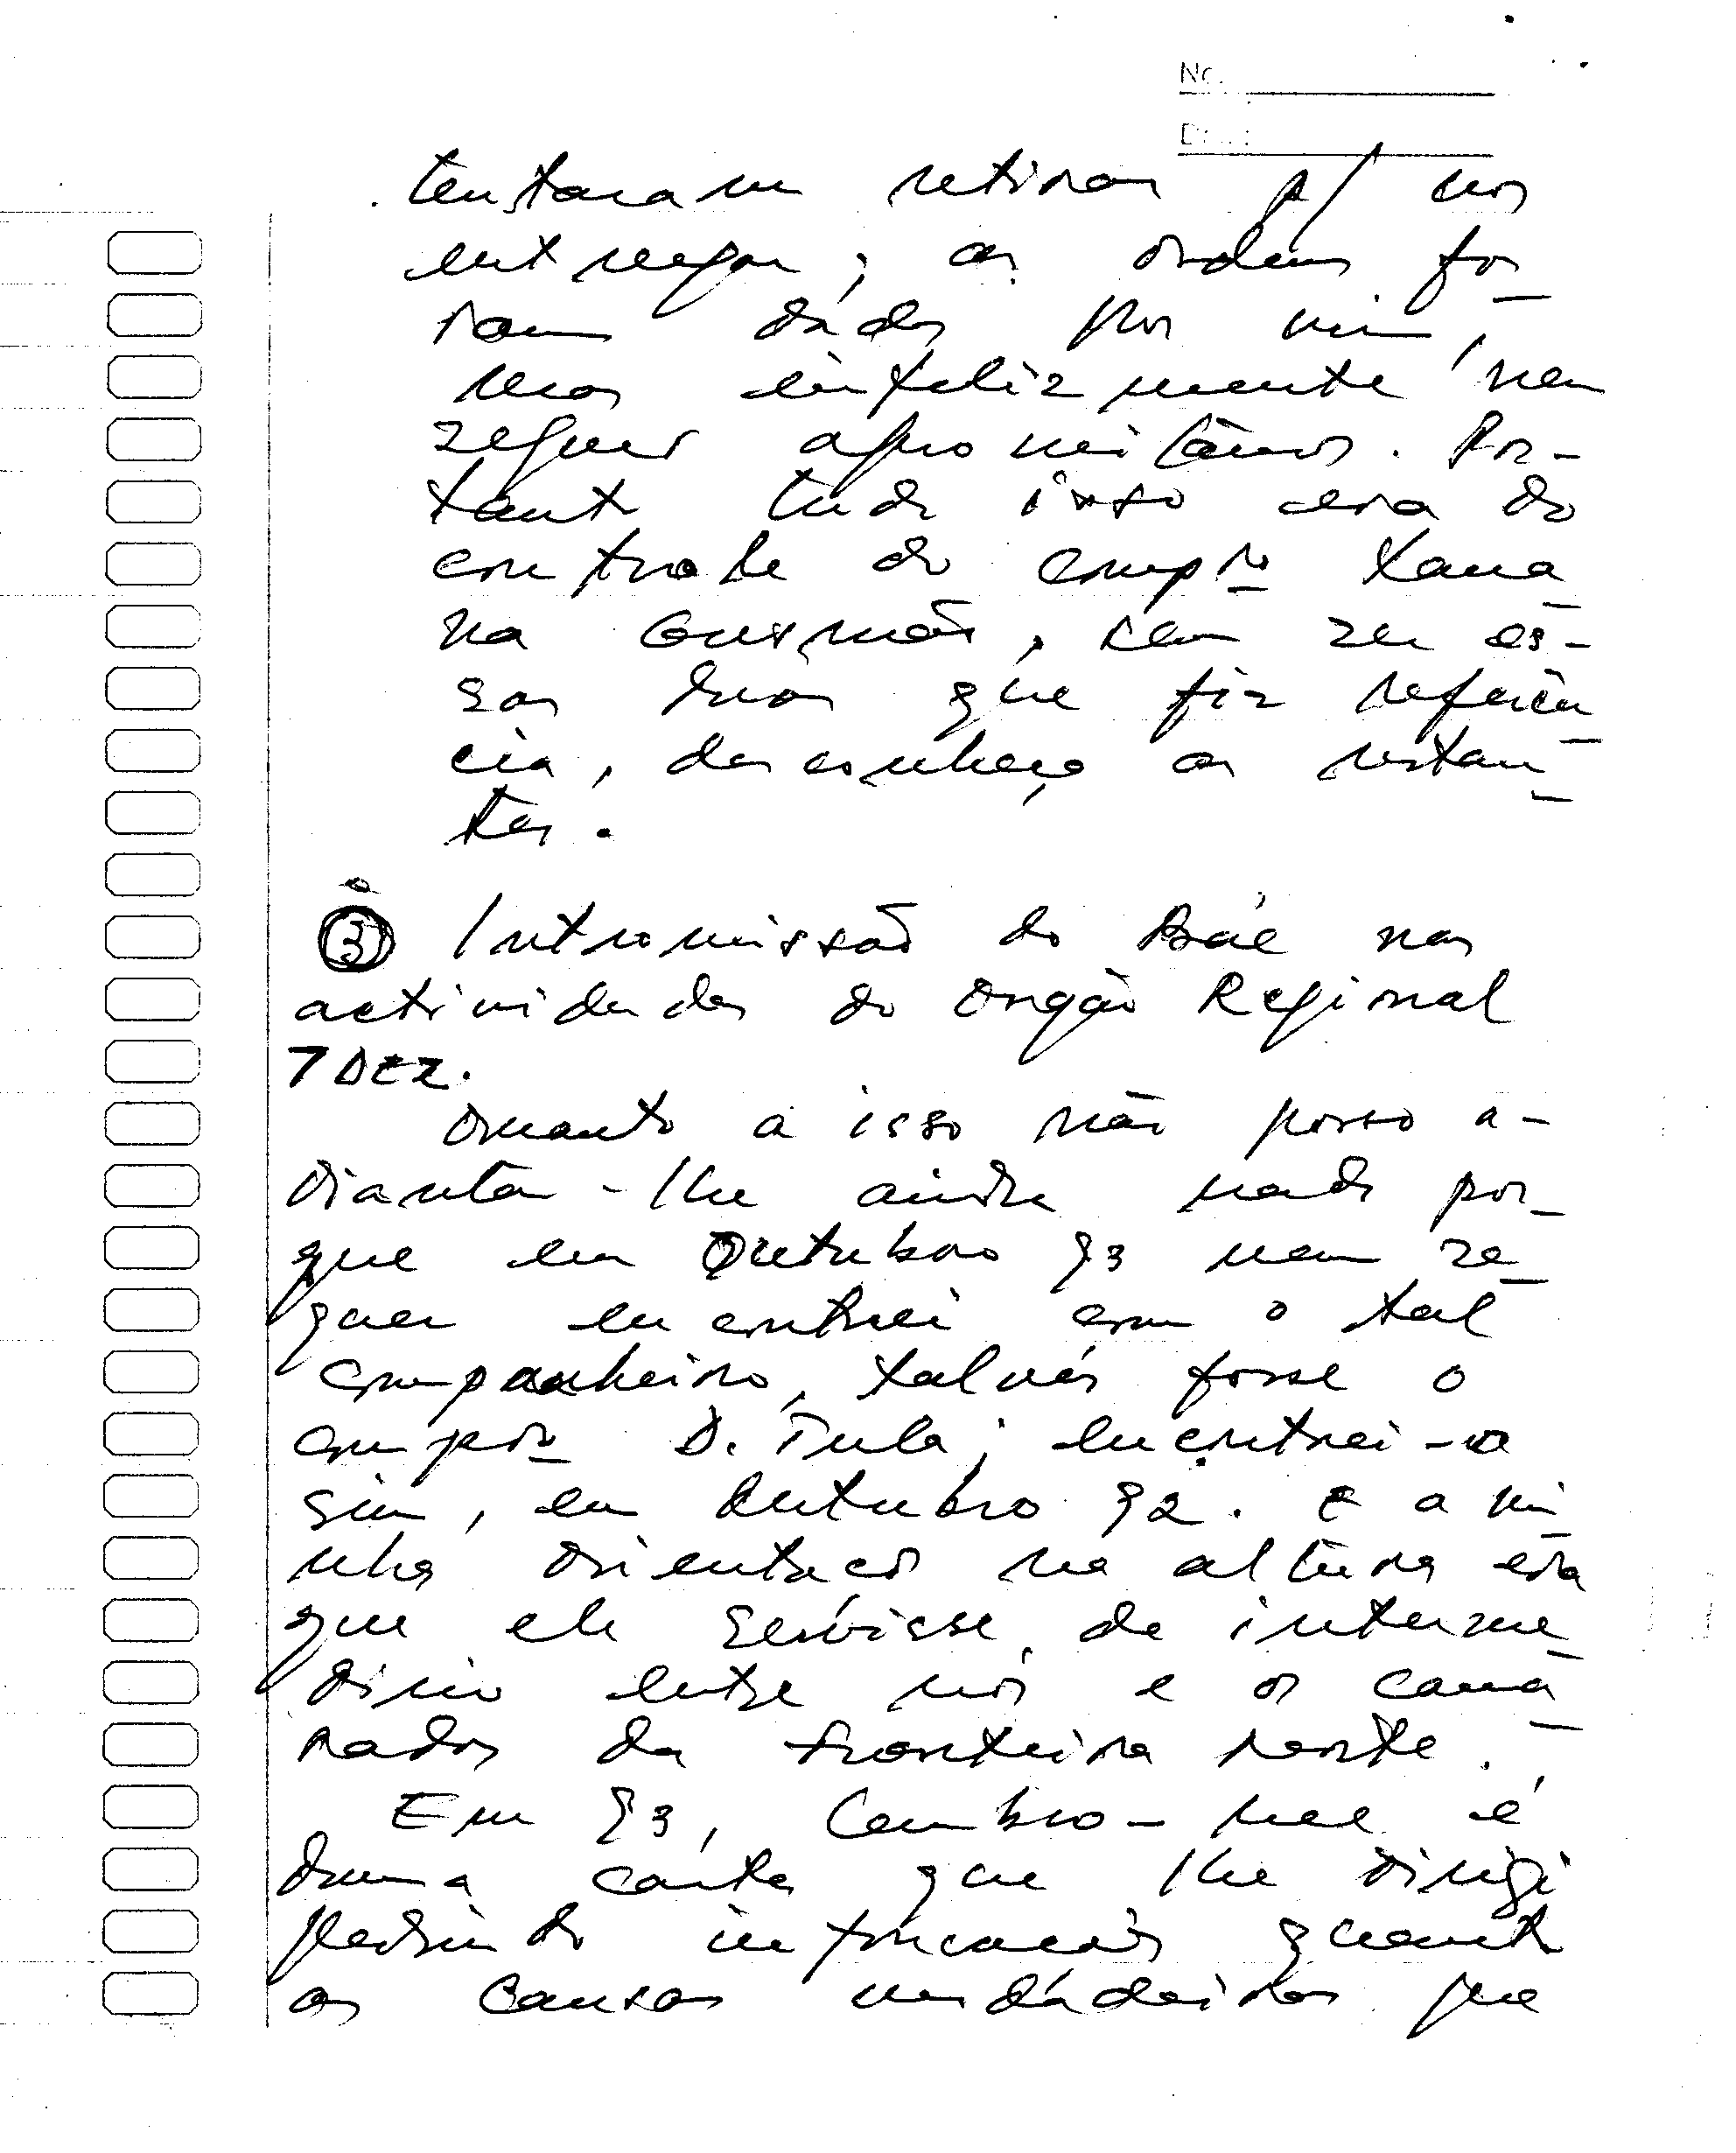 No.
tentaram retirar p/ nos
entregar; as ordens fo-
ram dadas por mim,
mas infelizmente nem
sequer aproveitámos. Por-
tanto tudo isso era do
controle do compro Xana
na Gusmão, sem ser es-
sas duas que fiz referên
cia, desconheço as restan
tes.
3º Intromissão do Baé nas
actividades do Orgão Regional
7 DEZ.
Quanto a isso não posso a-
diantar-lhe ainda nada por-
que em Outubro 93 nem se
quer encontrei com o tal
companheiro, talvés fosse o
compro D. Tula; encontrei-o
sim, em Outubro 92. E a mi
nha orientação na altura era
que ele servisse de interme
diário entre nós e os cama
radas da fronteira norte.
Em 93, lembro-me é
duma carta que lhe dirigi
pedindo informacões quanto
as causas verdadeiras que